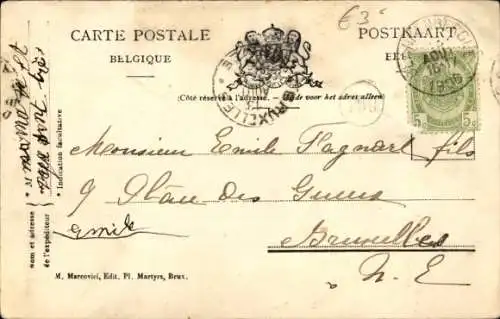 €3
CARTE POSTALE
BELGIQUE
POSTKAART
(Côté réservé à l'adresse. — Zijde voor het adres alleen)
BRUXELLES
5c 5c
Monsieur Emile Fagnart fils
9 Place des Gueux
Bruxelles
N. E
Emile
nom et adresse de l'expéditeur
* Indication facultative
M. Marcovici, Edit. Pl. Martyrs, Brux.